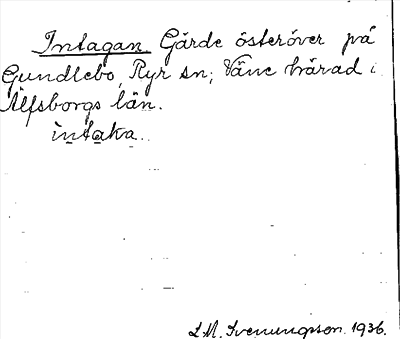 Intagan Gärde österöver på
Gundlebo, Ryr sn; Väne härad i
Älfsborgs län.
ìntaka.
L.M. Svenungsson 1936.